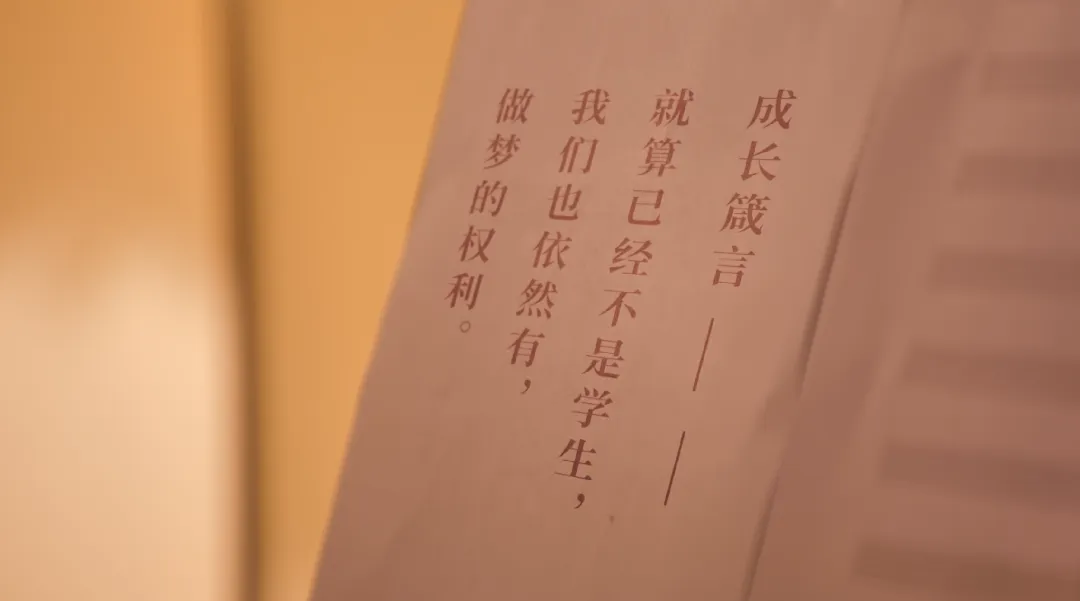 成长箴言——
就算已经不是学生，
我们也依然有，
做梦的权利。